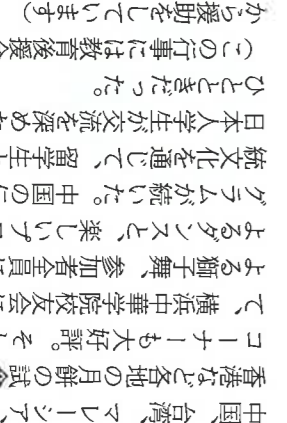 中国、台湾、マレーシア、
香港など各地の月餅の試
コーナーも大好評。そし
て、横浜中華学院校友会に
よる獅子舞、参加者全員に
よるダンスと、楽しいプロ
グラムが続いた。中国の伝
統文化を通じて、留学生と
日本人学生が交流を深めた
ひとときだった。
(この行事には教育後援会
から援助をしています)